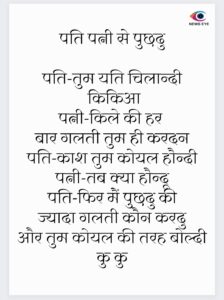 NEWS-EYE
पति पत्नी से पुछदु
पति-तुम यति चिलान्दी
किकिआ
पत्नी-किले की हर
बार गलती तुम ही करदन
पति-काश तुम कोयल हौन्दी
पत्नी-तब क्या हौन्दू
पति-फिर मैं पुछदु की
ज्यादा गलती कौन करदु
और तुम कोयल की तरह बोल्दी
कु कु